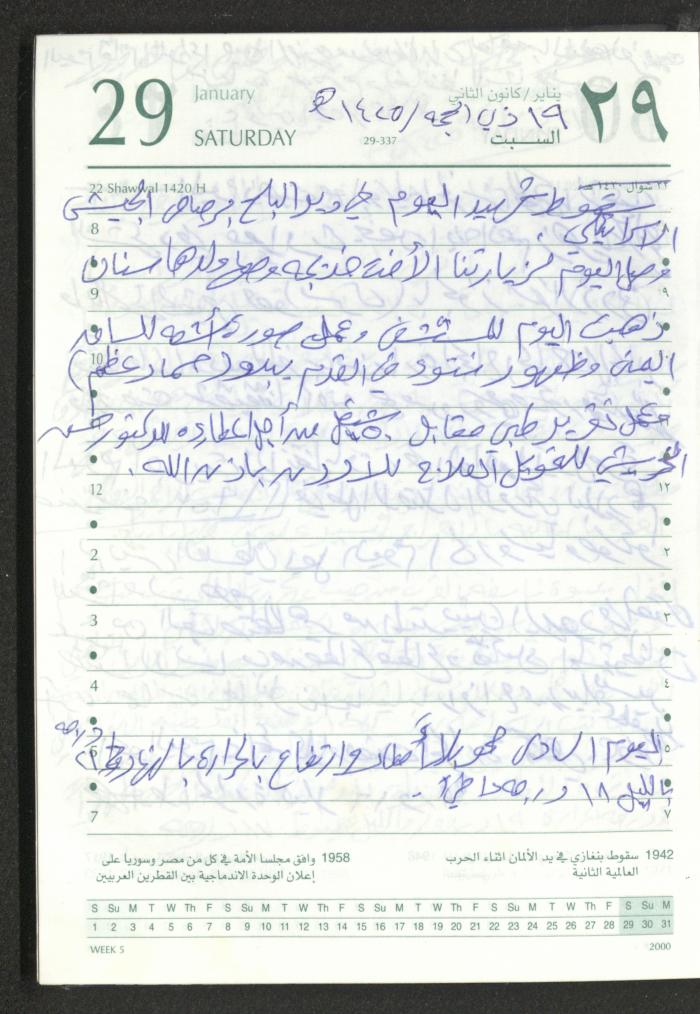 29 January يناير / كانون الثاني ٢٩
SATURDAY 29-337 السبت
١٩ ذي الحجة / ١٤٢٥ هـ
22 Shawwal 1420 H ٢٢ شوال ١٤٢٠ هـ
سقوط شهيد اليوم في دير البلح برصاص الجيش
8
الاسرائيلي
وصل اليوم لزيارتنا الأخت خديجه وولدها سنان
9 ٩
ذهبت اليوم للمستشفى وعمل صورة أشعه للساق
10
اليمنى وظهور نتوء في القدم يبدو (مسمار عظم)
وعمل تقرير طبي مقابل شيقل من أجل اعطاءه للدكتور
للعلاج للاردن باذن الله .
12 ١٢
2 ٢
3 ٣
4 ٤
اليوم السادس وارتفاع بالحرارة بالنهار درجه
٥
بالليل ١٨ درجه
7 ٧
1942 سقوط بنغازي في يد الألمان اثناء الحرب
العالمية الثانية
1958 وافق مجلسا الأمة في كل من مصر وسوريا على
إعلان الوحدة الاندماجية بين القطرين العربيين
S Su M T W Th F S Su M T W Th F S Su M T W Th F S Su M T W Th F S Su M
1 2 3 4 5 6 7 8 9 10 11 12 13 14 15 16 17 18 19 20 21 22 23 24 25 26 27 28 29 30 31
WEEK 5 2000